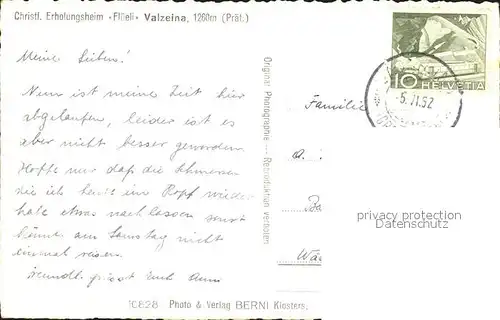 Christl. Erholungsheim «Flüeli» Valzeina, 1260m (Prät.)
Meine Lieben!
Nun ist meine Zeit hier
abgelaufen, leider ist es
aber nicht besser geworden.
Hoffe nur daß die Schmerzen
die ich heute im Kopf wieder
habe etwas nachlassen sonst
könnte am Samstag nicht
einmal reisen.
Freundl. grüsst Euch Anni
10628 Photo & Verlag BERNI Klosters.
Original Photographie — Reproduktion verboten
10 HELVETIA
-5.II.52
Familie
privacy protection
Datenschutz